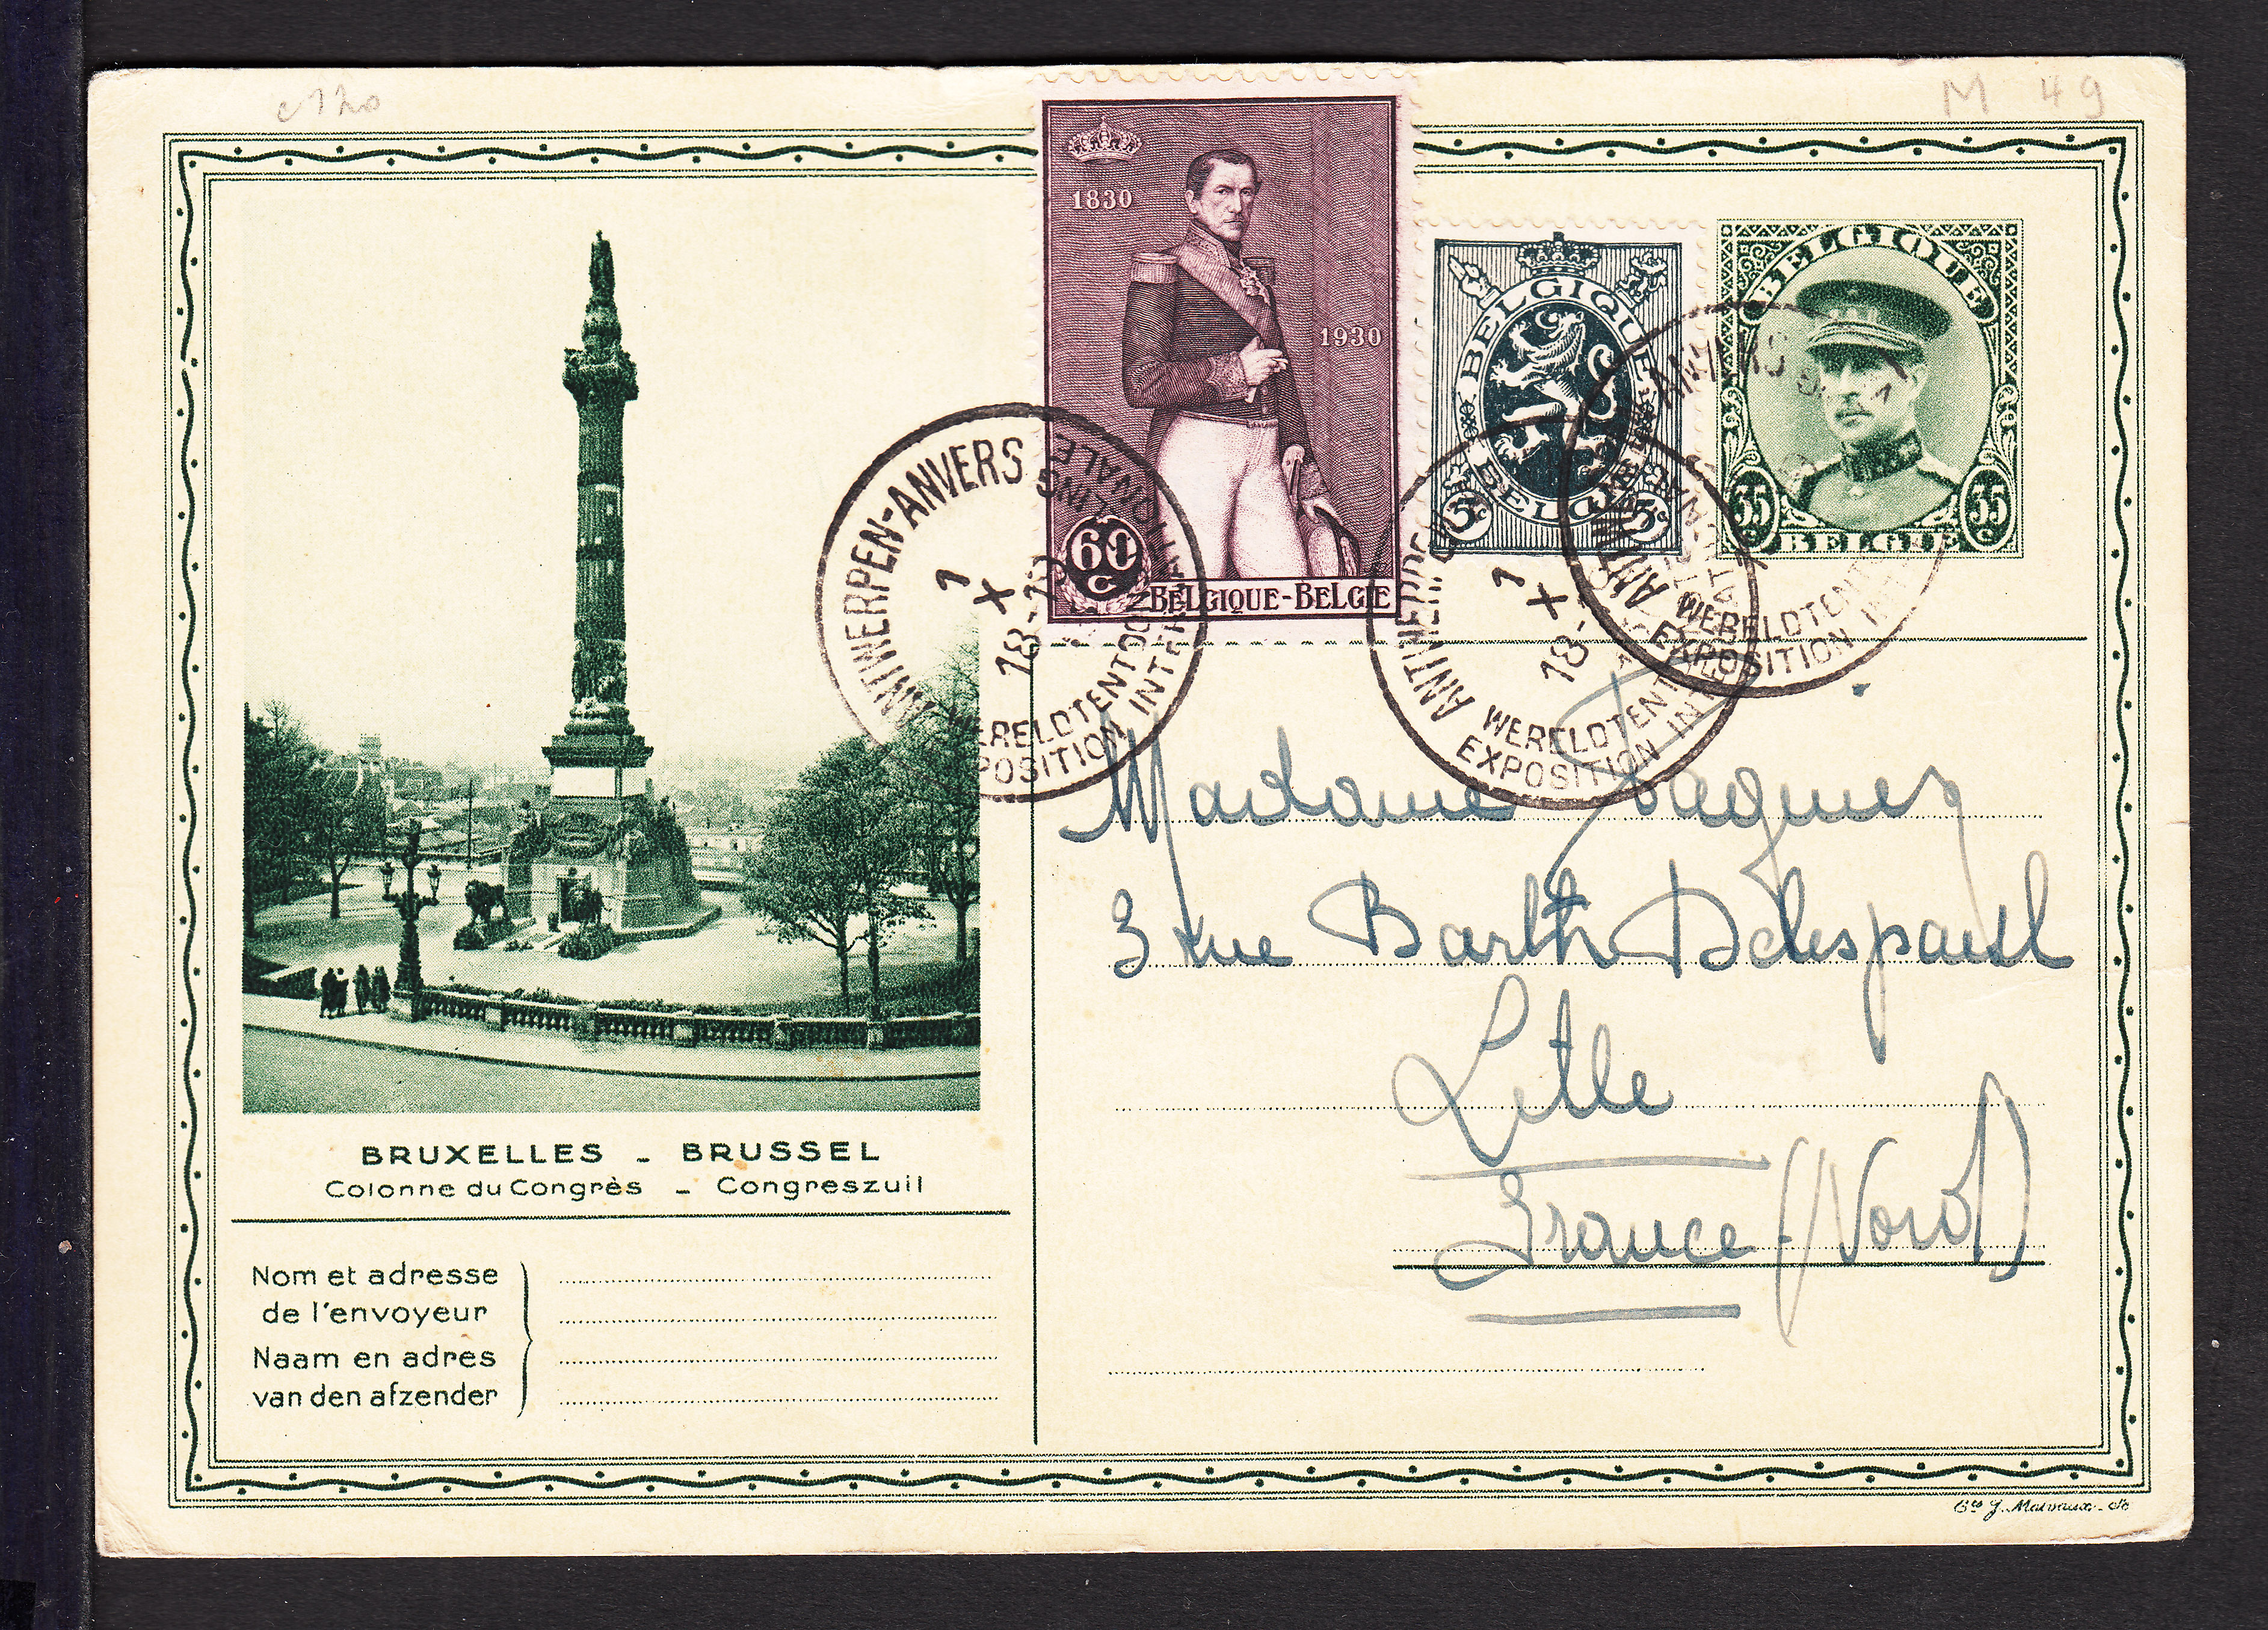 M 49
1830
1930
60
c
BELGIQUE-BELGIE
BELGIQUE
BELGIË
5c 5c
BELGIQUE
35 c 35 c
BELGIE
ANTWERPEN-ANVERS
1
X
18-19
WERELDTENTOONSTELLING
EXPOSITION INTERNATIONALE
ANTWERPEN
1
X
18-
WERELDTENT
EXPOSITION INTER
ANTWERPEN ANVERS
WERELDTENT
EXPOSITION IN
Madame
3 rue Barth Delespaul
Lille
France (Nord)
BRUXELLES - BRUSSEL
Colonne du Congrès - Congreszuil
Nom et adresse
de l'envoyeur
Naam en adres
van den afzender
Ets J. Malvaux